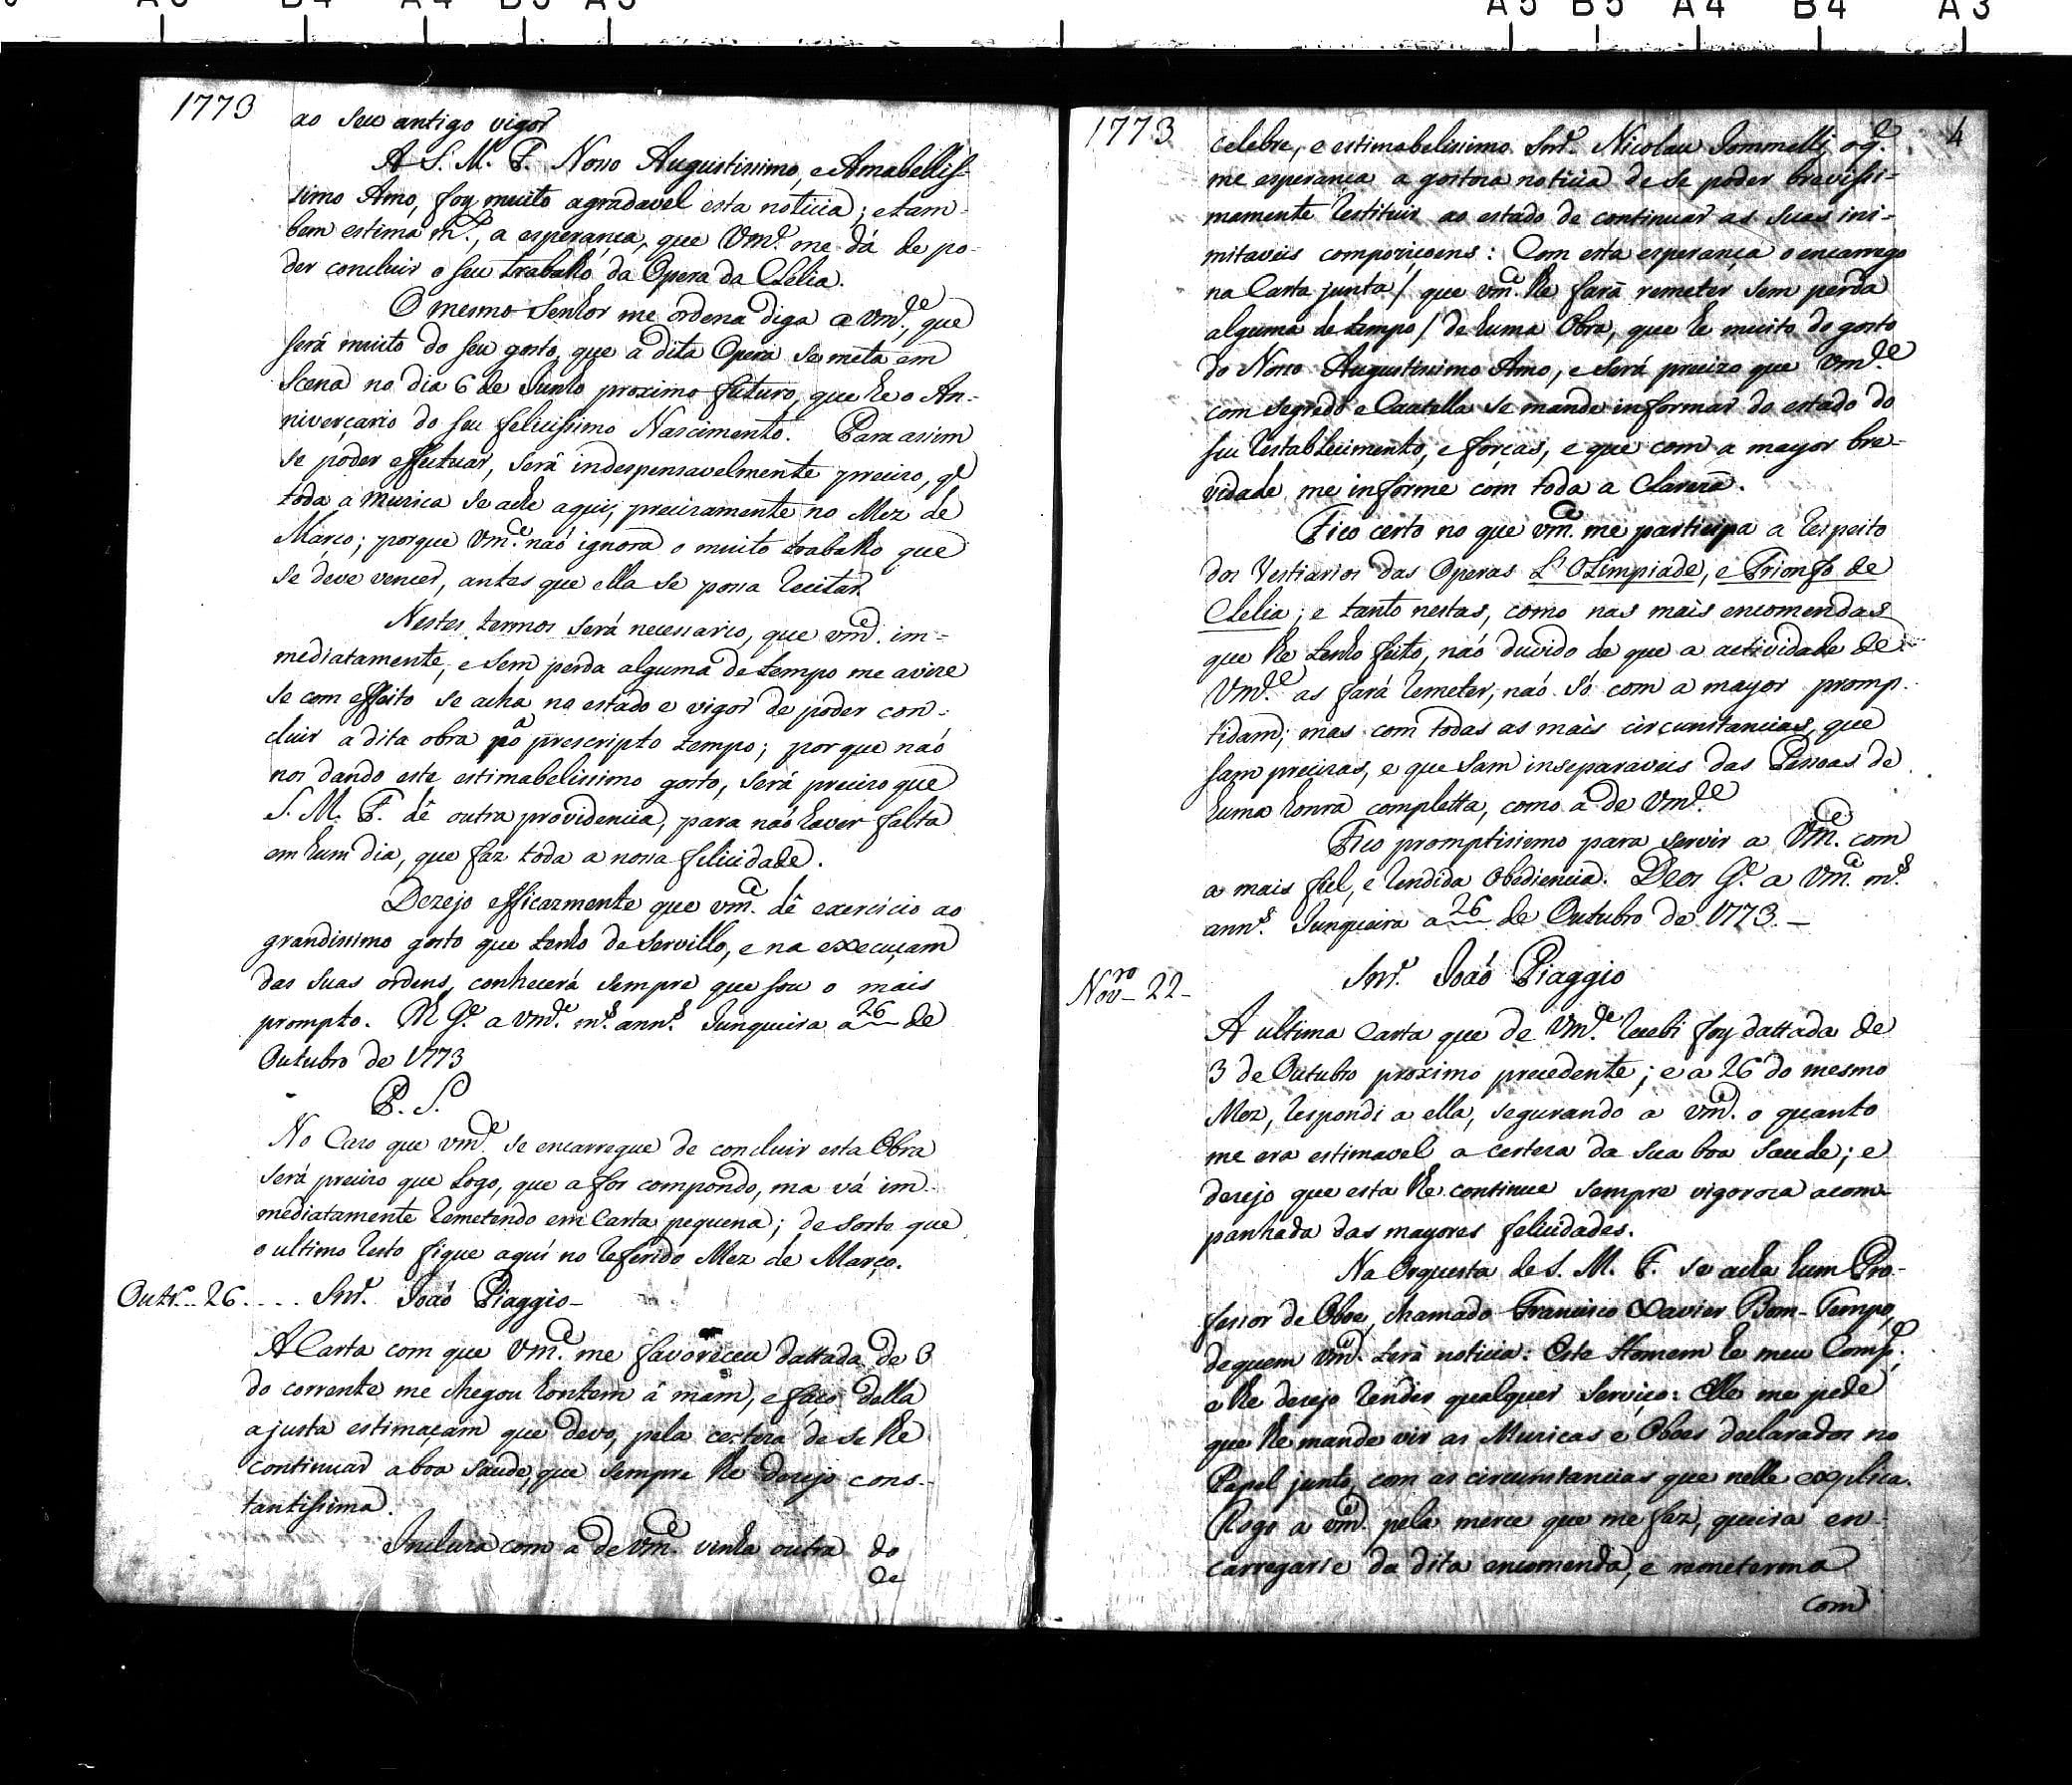 A3 B4 A4 B5 A5 A5 B5 A4 B4 A3
1773
ao seu antigo vigor
A S. M. F. Nosso Augustissimo, e Amabellis-
simo Amo, foy muito agradavel esta noticia; e tam-
bem estima m.to, a esperança, que Vm.ce me dá de po-
der concluir o seu trabalho da Opera da Clelia.
O mesmo Senhor me ordena diga a Vm.ce, que
será muito do seu gosto, que a dita Opera se meta em
Scena no dia 6 de Junho proximo futuro, que he o An-
niverçario do seu felicissimo Nascimento. Para assim
se poder effectuar, será indespensavelmente precizo, q.
toda a muzica se ache aqui, precizamente no Mez de
Março; porque Vm.ce naó ignora o muito trabalho que
se deve vencer, antes que ella se possa recitar.
Nestes termos será necessario, que vm.ce im-
mediatamente, e sem perda alguma de tempo me avize
se com effeito se acha no estado e vigor de poder con-
cluir a dita obra pa o prescripto tempo; por que naó
nos dando este estimabelissimo gosto, será precizo que
S. M. F. dê outra providencia, para naó haver falta
em hum dia, que faz toda a nossa felicidade.
Dezejo efficazmente que vm.ce dê exercicio ao
grandissimo gosto que tenho de servillo, e na execuçam
das suas ordens, conhecerá sempre que sou o mais
prompto. D.s G.e a vm.ce m.s ann.s Junqueira a 26 de
Outubro de 1773
P. S.
No Cazo que vm.ce se encarregue de concluir esta Obra
será precizo que Logo, que a for compondo, ma vá im-
mediatamente remetendo em Carta pequena; de sorte que
o ultimo resto fique aqui no referido Mez de Março.
Outr.º 26 .... Snr. Joaó Piaggio
A Carta com que Vm.ce me favoreceu dattada de 3
do corrente me chegou hontem á mam, e faço della
a justa estimaçam que devo, pela certeza de se lhe
continuar a boa saude, que sempre lhe dezejo cons-
tantissima.
Incluza com a de Vm.ce vinha outra do
ce
1773
4
celebre, e estimabelissimo Snr. Nicolau Jommelli, o q.e
me esperança a gostoza noticia de se poder brevissi-
mamente restituir ao estado de continuar as suas ini-
mitaveis compoziçoens: Com esta esperança o encarrego
na Carta junta / que vm.ce lhe fará remeter sem perda
alguma de tempo / de huma Obra, que he muito do gosto
do Nosso Augustissimo Amo, e será precizo que Vm.ce
com segredo e Cautella se mande informar do estado do
seu restablecimento, e forças, e que com a mayor bre-
vidade me informe com toda a Clareza.
Fico certo no que vm.ce me participa a respeito
dos Vestiarios das Operas L'Olimpiade, e Trionfo de
Clelia; e tanto nestas, como nas mais encomendas
que lhe tenho feito, naó duvido de que a actividade de
Vm.ce as fará remeter, naó só com a mayor promp-
tidam; mas com todas as mais circunstancias, que
sam precizas, e que sam inseparaveis das Pessoas de
huma honra completta, como a de Vm.ce
Fico promptissimo para servir a Vm.ce com
a mais fiel, e rendida Obediencia. Deos G.e a Vm.ce m.s
ann.s Junqueira a 26 de Outubro de 1773. —
Nov.ro 22-
Snr. Joaó Piaggio
A ultima Carta que de Vm.ce recebi foy dattada de
3 de Outubro proximo precedente; e a 26 do mesmo
Mez, respondi a ella, segurando a vm.ce o quanto
me era estimavel a certeza da sua boa saude; e
dezejo que esta lhe continue sempre vigoroza acom-
panhada das mayores felicidades.
Na Orquesta de S. M. F. se acha hum Pro-
fessor de Oboe, chamado Francisco Xavier Bom-Tempo,
de quem vm.ce terá noticia: Este Homem he meu Comp.e,
e lhe dezejo render qualquer serviço: Elle me pede
que lhe mande vir as Muzicas e Oboes declarados no
Papel junto, com as circunstancias que nelle explica.
Rogo a vm.ce pela merce que me faz, queira en-
carregarse da dita encomenda, e remeterma
com